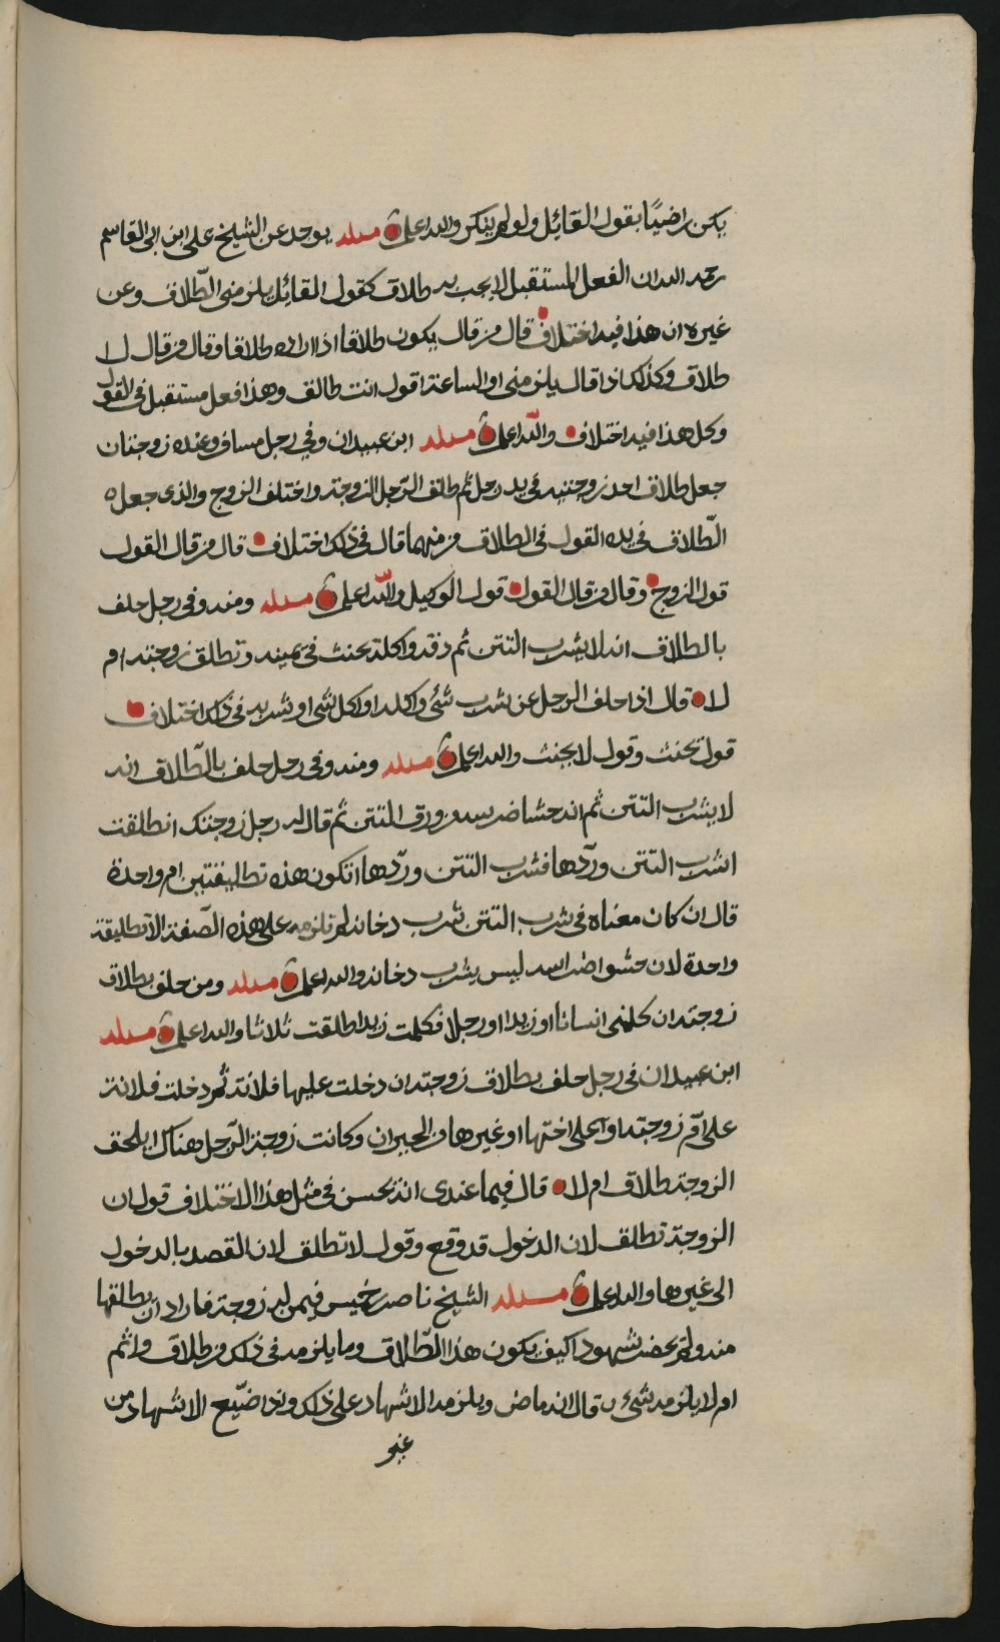 يكن راضيًا بقول القائل ولو لم ينكر والله اعلم مسئلة يوجد عن الشيخ علي ابن ابي القاسم
رحمه الله ان الفعل المستقبل لا يجب به طلاق كقول القائل يلزمني الطّلاق وعن
غيره ان هذا فيه اختلاف قال من قال يكون طلاقا اذا اراد طلاقا وقال من قال لا
طلاق وكذلك اذا قال يلزمني او الساعة اقول انت طالق وهذا فعل مستقبل في القول
وكل هذا فيه اختلاف والله اعلم مسئلة ابن عبيدان وفي رجل مسافر وعنده زوجتان
جعل طلاق احد زوجتيه في يد رجل ثم طلق الرّجل الزوجة واختلف الزوج والذى جعل ه
الطّلاق في يده القول في الطلاق من منهما قال في ذلك اختلاف قال من قال القول
قول الزوج وقال من قال القول قول الوكيل والله اعلم مسئلة ومنه وفي رجل حلف
بالطلاق انه لا يشرب التتن ثم دقه واكله يحنث في يمينه وتطلق زوجته ام
لا قال اذا حلف الرجل عن شرب شئ واكله او اكل شئ او شربه في ذلك اختلاف
قول يحنث وقول لا يحنث والله اعلم مسئلة ومنه وفي رجل حلف بالطّلاق انه
لا يشرب التتن ثم انه حشا ضرسه من ورق التتن ثم قال له رجل زوجتك انطلقت
اشرب التتن وردّها فشرب التتن وردّها اتكون هذه تطليقتين ام واحدة
قال ان كان معناه في شرب التتن شرب دخانه لم تلزمه على هذه الصّفة الا تطليقة
واحدة لان حشو اضراسه ليس يشرب دخانه والله اعلم مسئلة ومن حلف بطلاق
زوجته ان كلمني انسانا او زيدا او رجلا فكلمت زيدا طلقت ثلاثا والله اعلم مسئلة
ابن عبيدان في رجل حلف بطلاق زوجته ان دخلت عليها فلانة ثم دخلت فلانة
على امّ زوجته او على اختها او غيرها من الجيران وكانت زوجة الرّجل هناك ايلحق
الزوجة طلاق ام لا قال فيما عندى انه يحسن في مثل هذا الاختلاف قول ان
الزوجة تطلق لان الدخول قد وقع وقول لا تطلق لان القصد بالدخول
الى غيرها والله اعلم مسئلة الشيخ ناصر بن خميس فيمن له زوجة فاراد ان يطلقها
منه ولم يحضر شهودا كيف يكون هذا الطّلاق وما يلزمه في ذلك من طلاق واثم
ام لا يلزمه شئ قال انه ماض ويلزمه الاشهاد على ذلك وان ضيّع الاشهاد من
غير